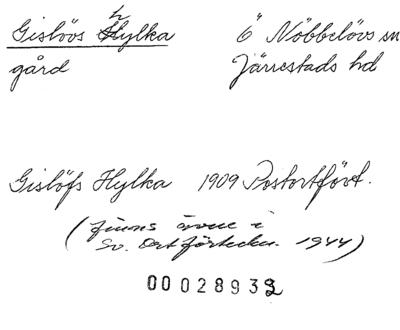 Gislövs Hylka Ö Nöbbelövs sn
gård Järrestads hd
Gislöfs Hylka 1909 Postortfört.
(finns även i
Sv. Ortförteckn. 1944)
00028932